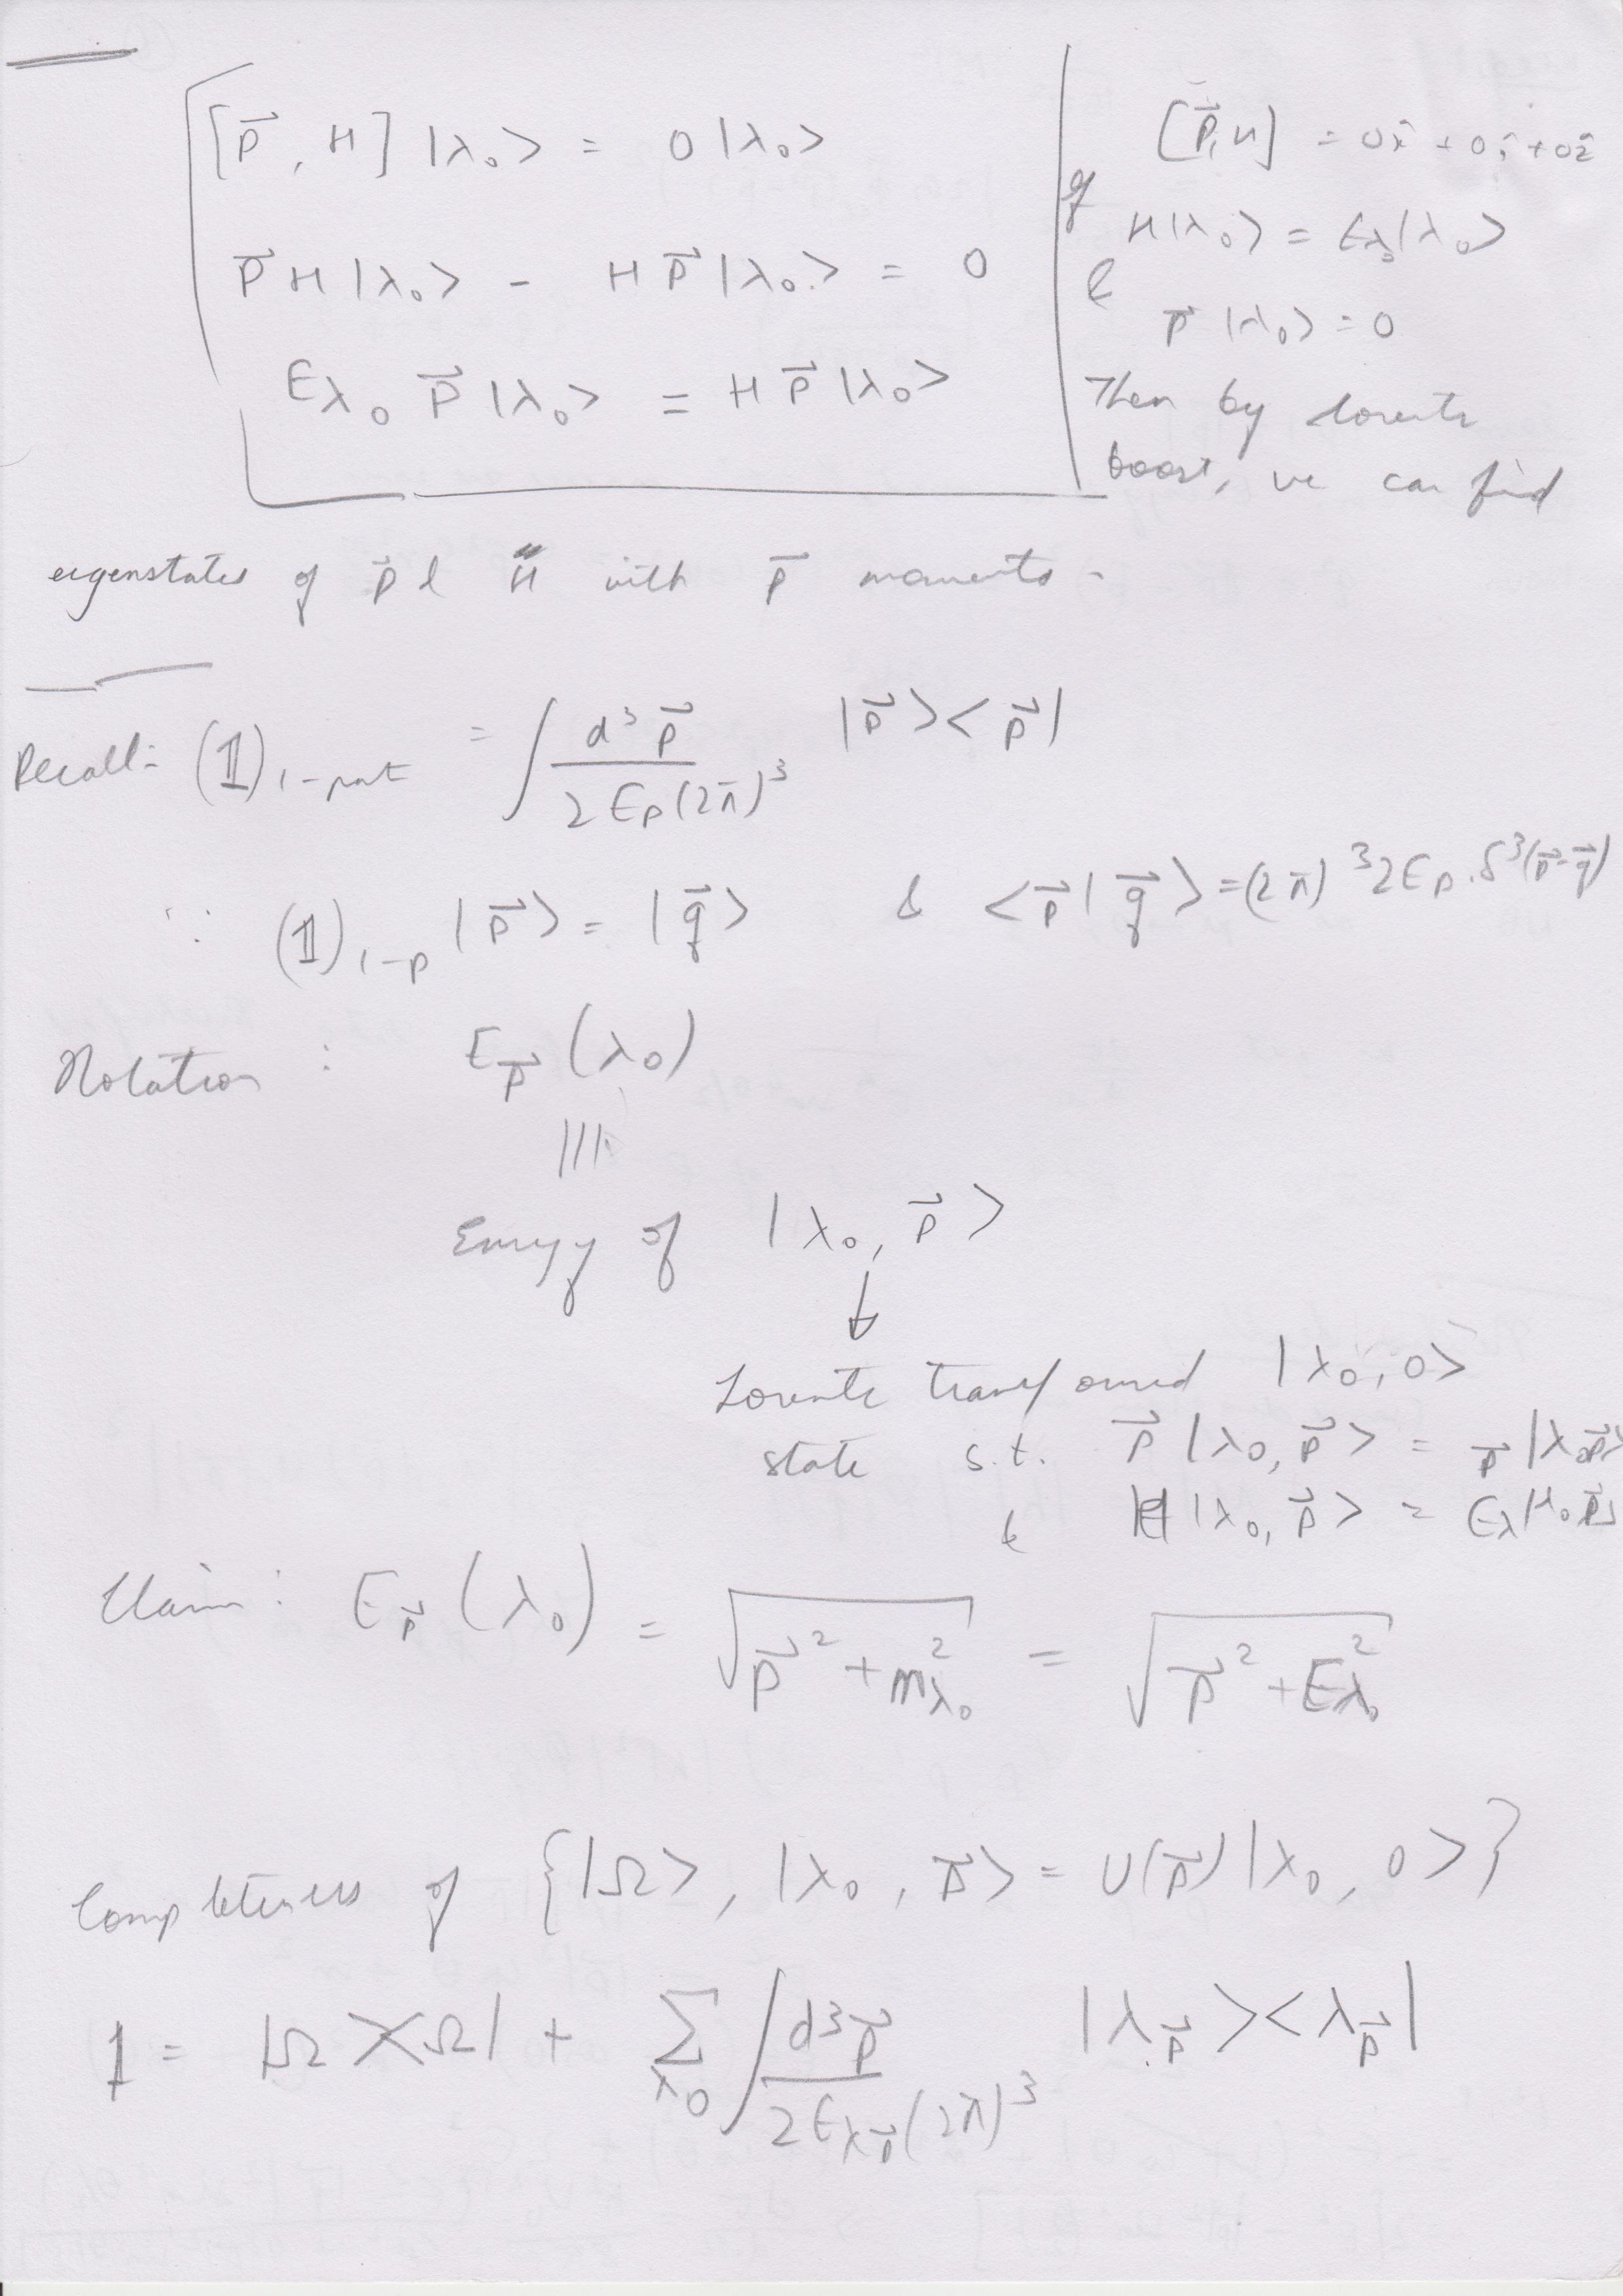 [P⃗, H] |λ₀> = 0 |λ₀>
P⃗ H |λ₀> - H P⃗ |λ₀> = 0
Eλ₀ P⃗ |λ₀> = H P⃗ |λ₀>
[P⃗, H] = 0x̂ + 0ĵ + 0ẑ
if H|λ₀> = Eλ₀|λ₀>
& P⃗ |λ₀> = 0
Then by Lorentz
boost, we can find
eigenstates of P⃗ & H with P⃗ momenta.
Recall: (𝟙)₁₋ₚₐᵣₜ = ∫ d³p⃗ / 2Eₚ(2π)³ |p⃗><p⃗|
∵ (𝟙)₁₋ₚ |p⃗> = |q⃗> & <p⃗|q⃗> = (2π)³ 2Eₚ.δ³(p⃗-q⃗)
Notation : E_p⃗ (λ₀)
|||
Energy of |λ₀, p⃗>
↓
Lorentz transformed |λ₀, 0>
state s.t. P⃗ |λ₀, p⃗> = p⃗ |λ₀p⃗>
& H |λ₀, p⃗> = Eλ |λ₀ p⃗>
Claim: E_p⃗ (λ₀) = √(p⃗² + m²λ₀) = √(p⃗² + E²λ₀)
Completeness of {|Ω>, |λ₀, p⃗> = U(p⃗) |λ₀, 0>}
1 = |Ω><Ω| + Σ_λ₀ ∫ d³p⃗ / 2E_λp⃗ (2π)³ |λ_p⃗><λ_p⃗|